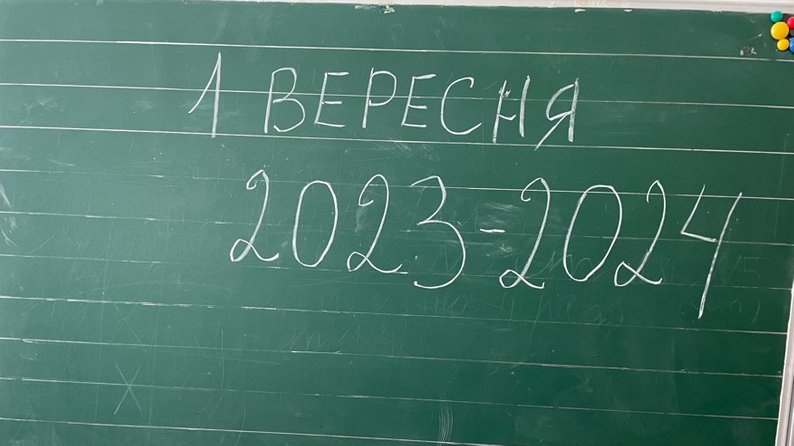 1 ВЕРЕСНЯ
2023-2024